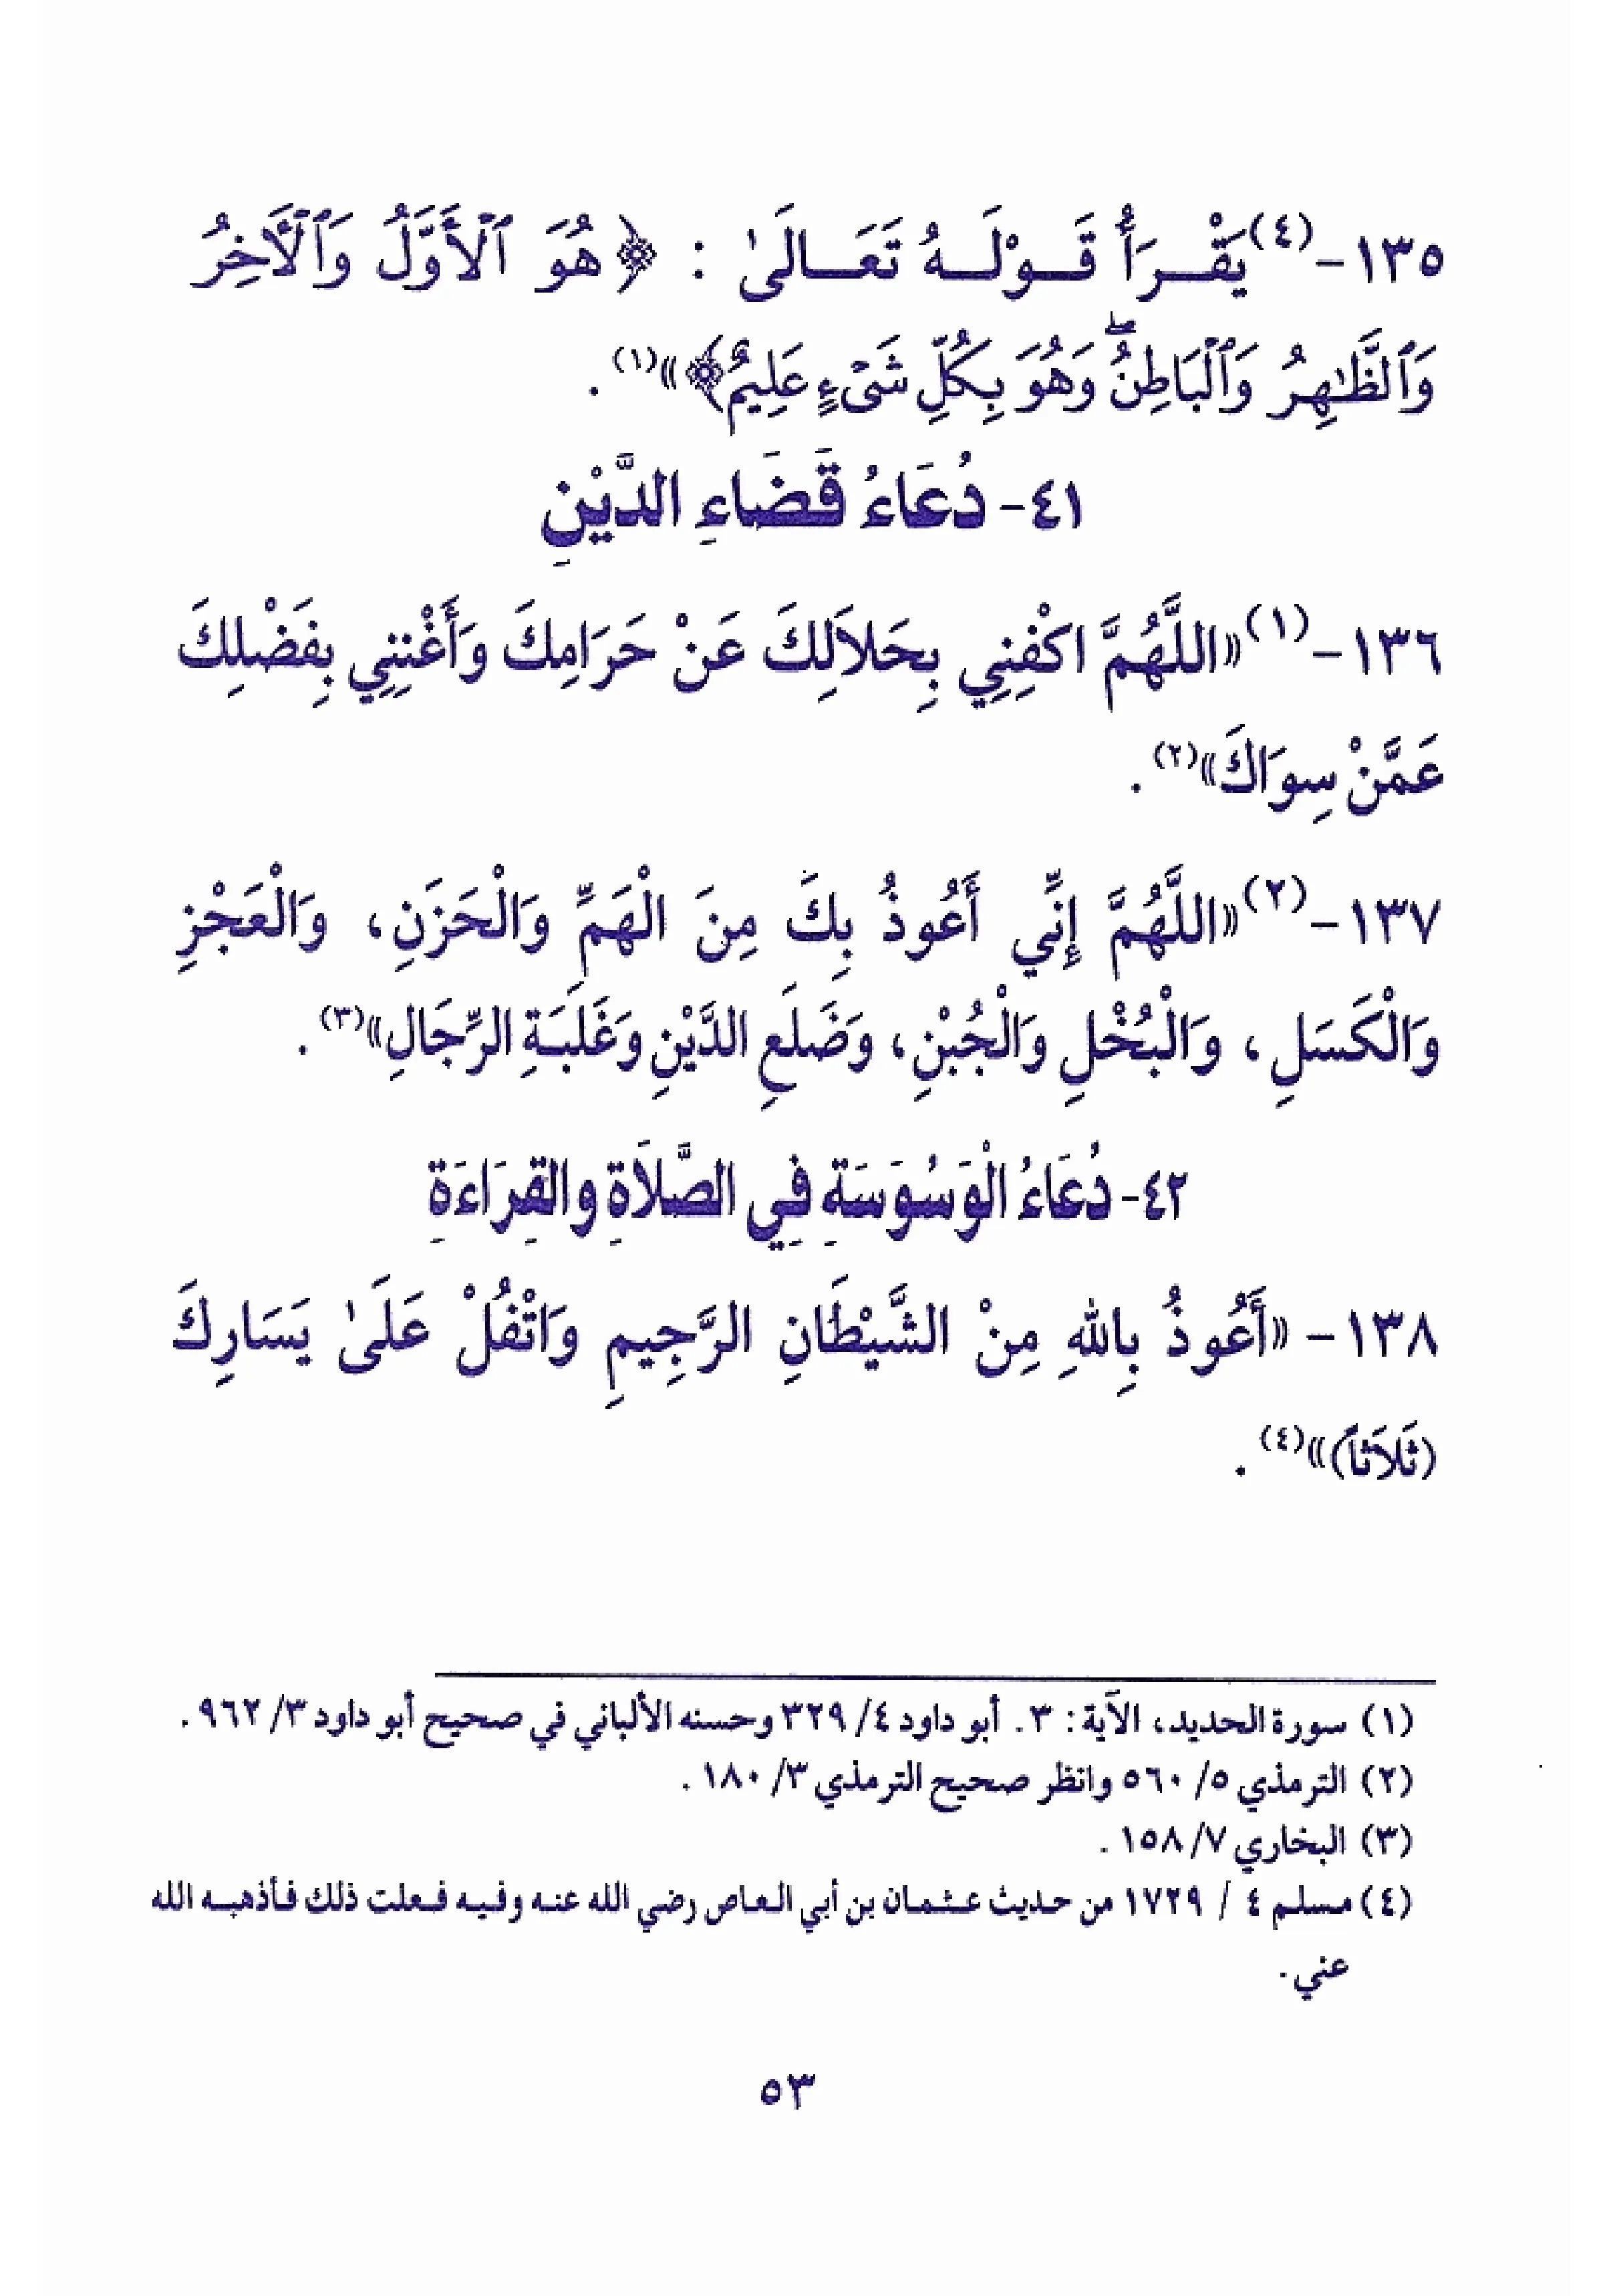 ١٣٥-(٤) يَقْـرَأُ قَـوْلَـهُ تَعَـالَىٰ : ﴿ هُوَ ٱلْأَوَّلُ وَٱلْآخِرُ
وَٱلظَّـٰهِرُ وَٱلْبَاطِنُۖ وَهُوَ بِكُلِّ شَىْءٍ عَلِيمٌ﴾»(١) .
٤١- دُعَاءُ قَضَاءِ الدَّيْنِ
١٣٦-(١)«اللَّهُمَّ اكْفِنِي بِحَلاَلِكَ عَنْ حَرَامِكَ وَأَغْنِنِي بِفَضْلِكَ
عَمَّنْ سِوَاكَ»(٢) .
١٣٧-(٢)«اللَّهُمَّ إِنِّي أَعُوذُ بِكَ مِنَ الْهَمِّ وَالْحَزَنِ، وَالْعَجْزِ
وَالْكَسَلِ، وَالْبُخْلِ وَالْجُبْنِ، وَضَلَعِ الدَّيْنِ وَغَلَبَـةِ الرِّجَالِ»(٣) .
٤٢- دُعَاءُ الْوَسْوَسَةِ فِي الصَّلَاةِ والقِرَاءَةِ
١٣٨- «أَعُوذُ بِاللهِ مِنْ الشَّيْطَانِ الرَّجِيمِ وَاتْفُلْ عَلَىٰ يَسَارِكَ
(ثَلاَثاً)»(٤) .
(١) سورة الحديد، الآية: ٣. أبو داود ٤/ ٣٢٩ وحسنه الألباني في صحيح أبو داود ٣/ ٩٦٢ .
(٢) الترمذي ٥/ ٥٦٠ وانظر صحيح الترمذي ٣/ ١٨٠ .
(٣) البخاري ٧/ ١٥٨ .
(٤) مسلم ٤ / ١٧٢٩ من حديث عثمان بن أبي العاص رضي الله عنه وفيه فعلت ذلك فأذهبه الله
عني .
٥٣